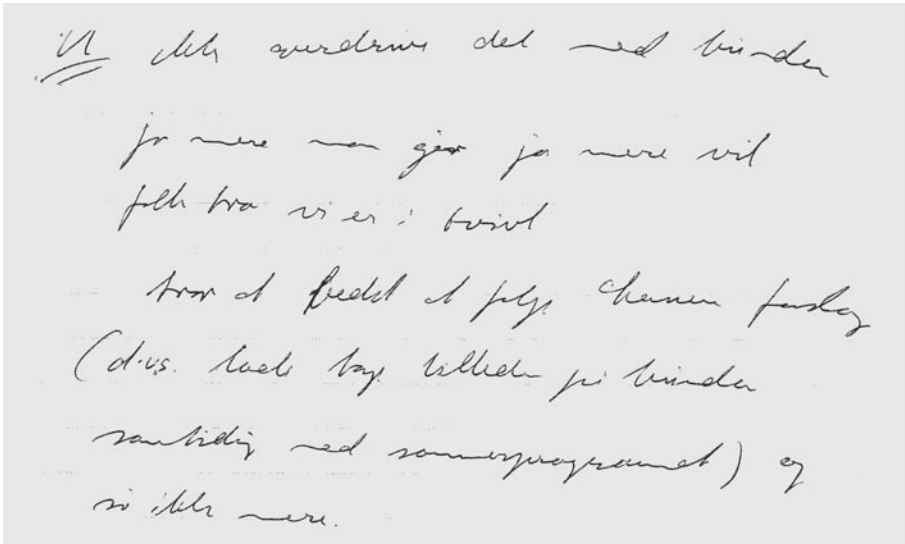 Vil ikke overdrive det med kvinden
jo mere man gør jo mere vil
folk tro vi er i tvivl
tror at bedst at følge chansen forslag
(d.v.s. lade tage billeder på kvinder
samtidig med sommerprogrammet) og
så ikke mere.